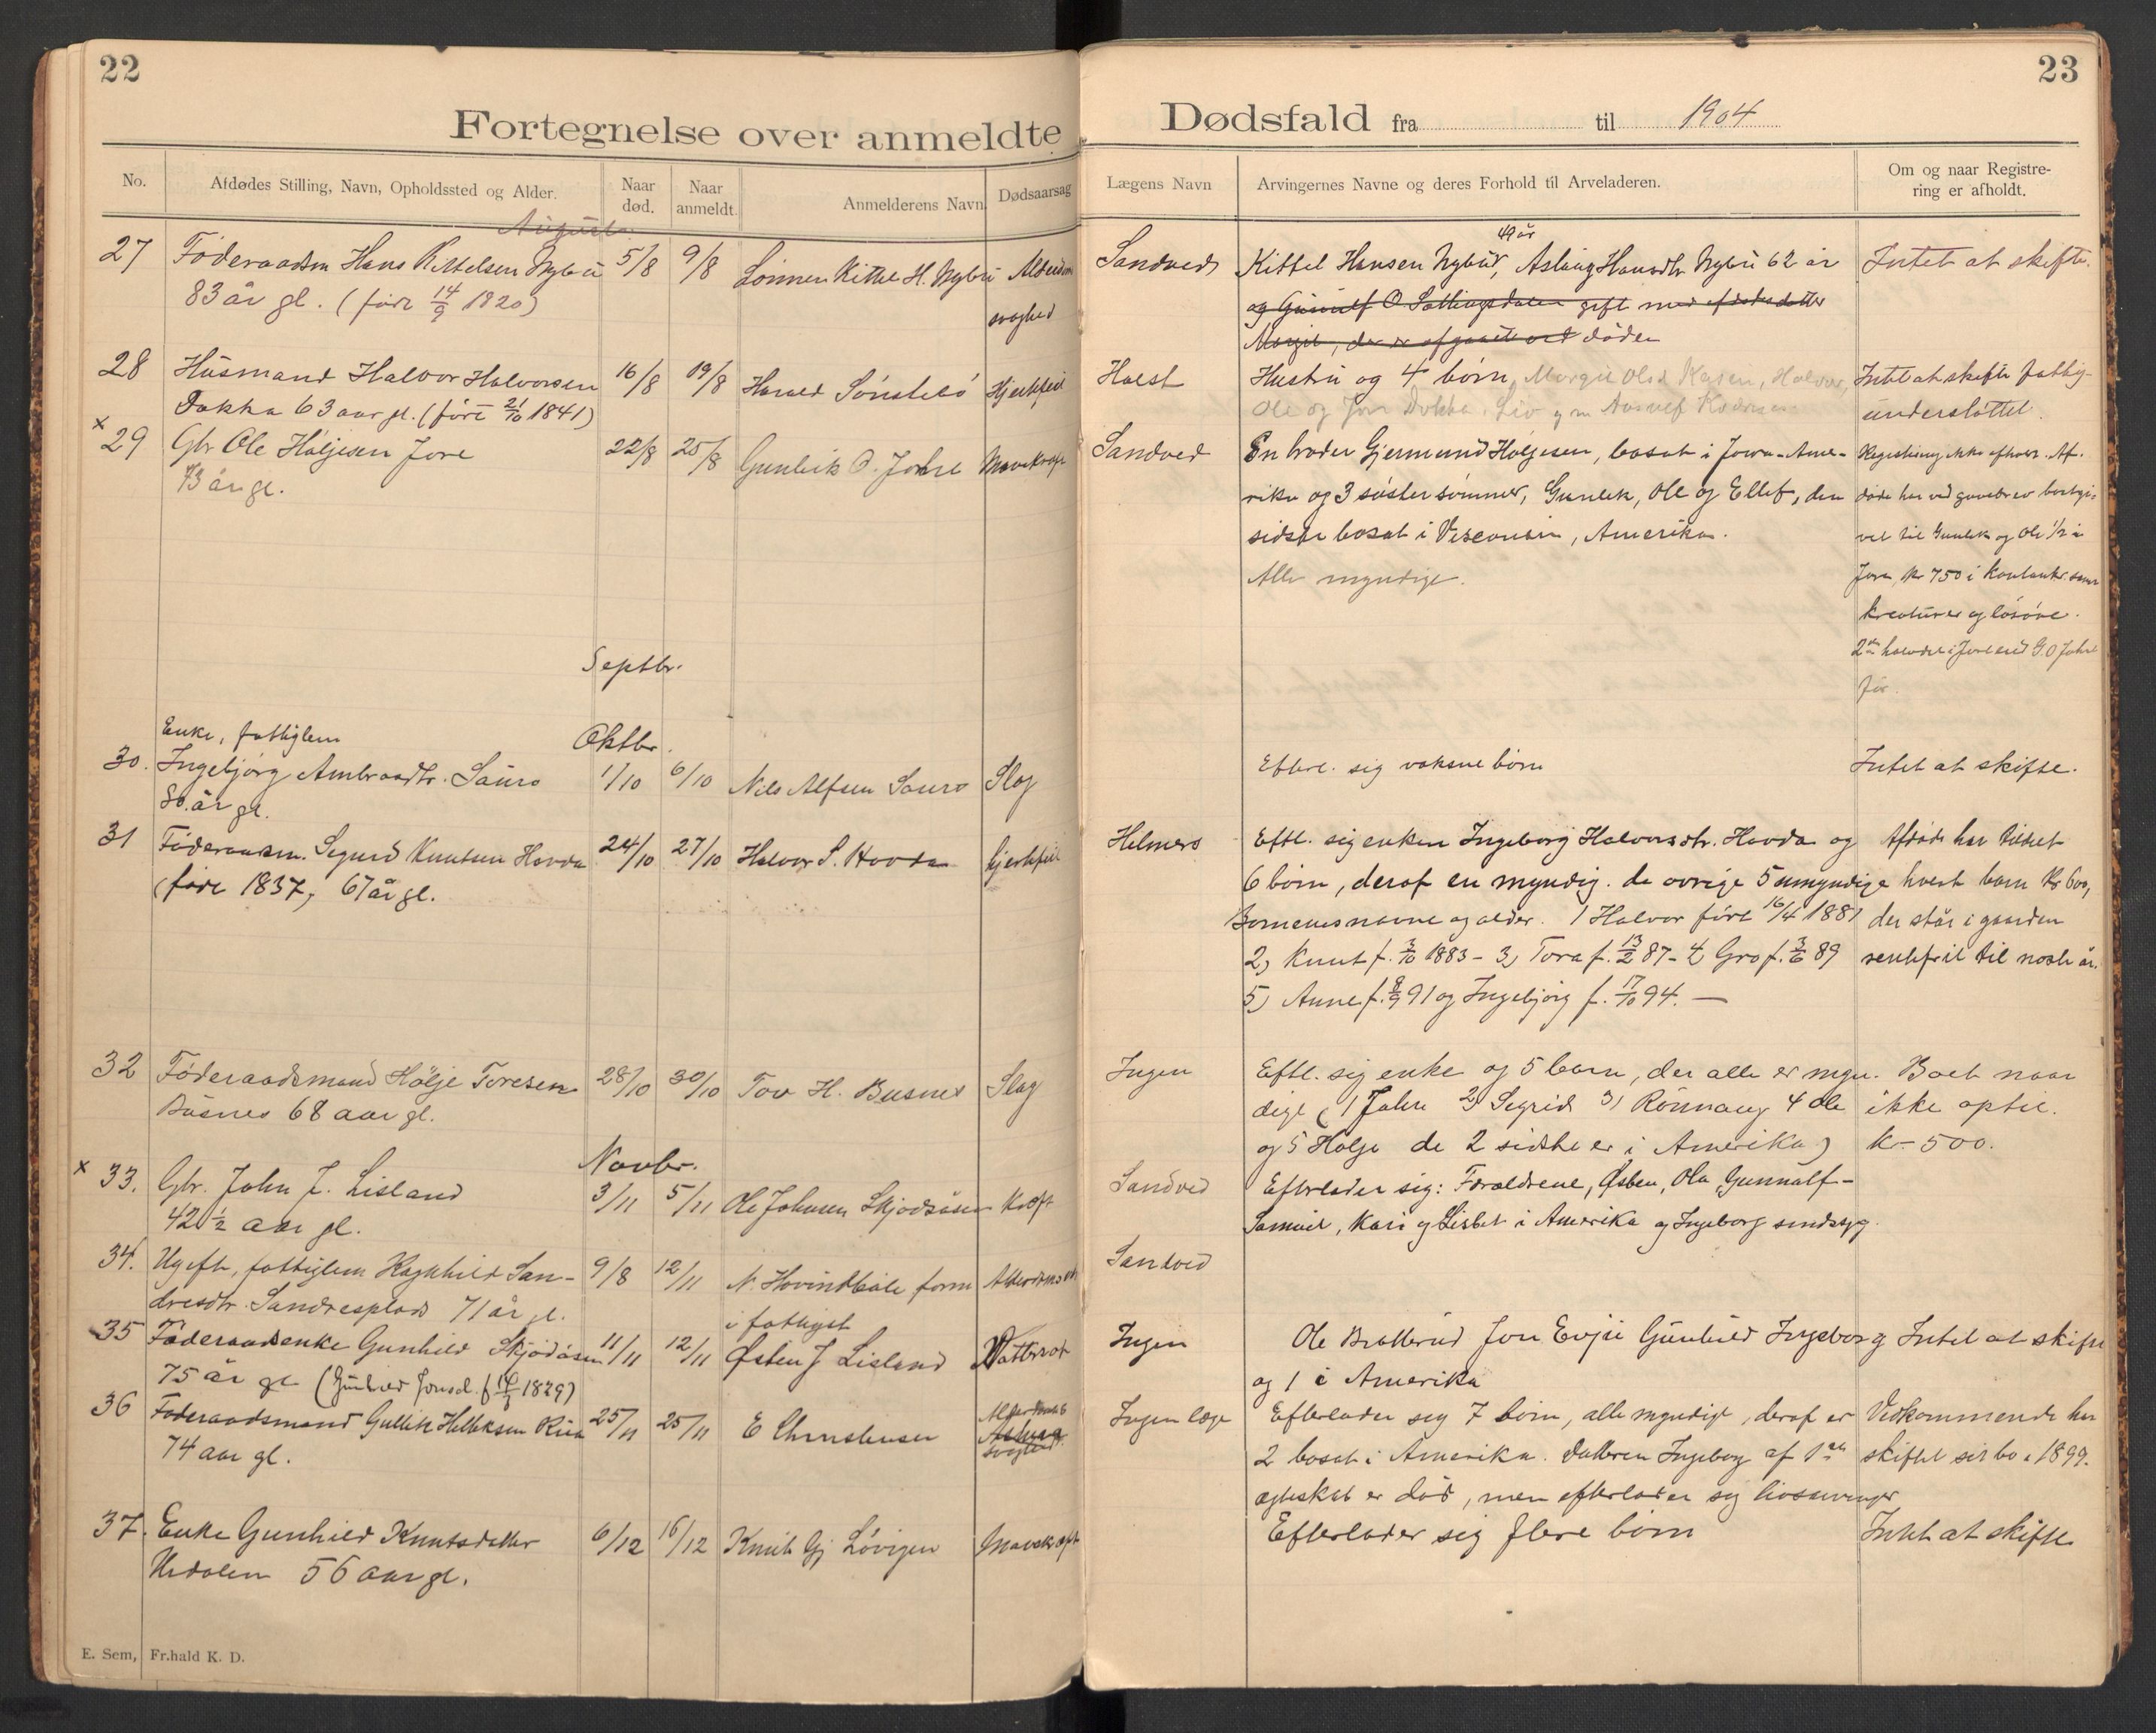 22
Fortegnelse over anmeldte
No.
Afdødes Stilling, Navn, Opholdssted og Alder.
Naar død.
Naar anmeldt.
Anmelderens Navn
Dødsaarsag
August
27 Föderaadsm Hans Kittelsen Nybu 5/8 9/8 Sönnen Kittel H. Nybu Alderdoms
83 år gl. (født 14/9 1820) svaghed
28 Husmand Halvor Halvorsen 16/8 19/8 Harald Sönstebö Hjertefeil
Dokka 63 aar gl. (født 21/10 1841)
x
29 Gbr Ole Höljesen Jore 22/8 25/8 Gunleik O. Johre Mavekræft
73 år gl.
Septbr.
Enke, fattiglem Oktbr.
30. Ingebjörg Ambrosdtr. Sauro 1/10 6/10 Nils Alfsen Sauro Slag
80 år gl.
31 Föderaadsm. Sigurd Knutsen Hovda 24/10 27/10 Halvor S. Hovda hjertefeil
(født 1837, 67 år gl.
32 Föderaadsmand Hölje Toresen 28/10 30/10 Tov H. Busnes Slag
Busnes 68 aar gl.
Novbr.
x 33. Gbr. John J. Lisland 3/11 5/11 Ole Johnsen Skjödsåsen Kræft
42 1/2 aar gl.
34. Ugift, fattiglem Ragnhild San- 9/8 12/11 N. Hovindbøle form
dresdtr. Sandresplads 71 år gl. i fattigst
35 Föderaadsenke Gunhild Skjödåsen 11/11 12/11 Østen J Lisland Vattersot
75 år gl (Gunhild Jonsd. 1829)
36 Föderaadsmand Gullik Helleksen Rua 25/11 25/11 E Christensen Alderdoms
74 aar gl. svaghed
37. Enke Gunhild Knutsdatter 6/12 16/12 Knut Gj Lövigen Mavekræft
Uvdalen 56 aar gl.
E. Sem, Fr.hald K. D.
23
Dødsfald fra til 1904
Lægens Navn
Arvingernes Navne og deres Forhold til Arveladeren.
Om og naar Registre-
ring er afholdt.
49 år
Sandved Kittel Hansen Nybu, Aslaug Hansdtr Nybu 62 år Intet at skifte.
og Gunulf O Sattingsdalen gift med afdødes datter
Margit, der er afgaaet ved döden
Holst Hustru og 4 börn, Margit Olsd, Halvor, Intet at skifte fattig-
Ole og Jon Dokka, Liv g m understöttet.
Sandved En broder Gjermund Höljesen, bosat i Jowa - Ame- Registering ikke afholdt. Af-
rika og 3 söstersönner, Gunlek, Ole og Ellef, den döde har ved gavebrev bortgi-
sidste bosat i Visconsin, Amerika. vet til Gunlek og Ole 1/2 i
Alle myndige. Jore, kr 750 i kontanter samt
kreaturer og lösöre.
2den halvdel i Jore eied G. O Johre
för.
Efterl. sig voksne börn Intet at skifte.
Helmers Eftl. sig enken Ingeborg Halvorsdtr. Hovda og Afdöde har tildelt
6 börn, deraf en myndig. de övrige 5 umyndige hvert barn Kr 600,
Börnenes navne og alder. 1 Halvor födt 16/4 1881 der står i gaarden
2) Knut f. 3/10 1883 - 3) Tora f. 13/2 87 - 4 Gro f. 3/6 89 rentefrit til nöste år.
5) Anne f. 8/9 91 og Ingebjörg f. 17/10 94. —
Ingen Eftl. sig enke og 5 barn, der alle er myn- Boet naar
dige (1 John 2) Sigrid 3) Rönnaug 4 Ole ikke optil.
og 5 Hölje de 2 sidste er i Amerika) kr 500.
Sandved Efterlader sig: Foraldrene, Østen, Ola, Gunnulf -
Samuel, Kari og Lisbet i Amerika og Ingeborg sindssyg.
Sandved
Ingen Ole Bratterud Jon Evju Gunhild Ingeborg Intet at skifte
og 1 i Amerika
Ingen læge Efterlader sig 7 börn, alle myndige, deraf er Vedkommende har
2 bosat i Amerika. Datteren Ingeborg af 1ste skiftet sit bo i 1899.
ægteskab er död, men efterlader sig livsarvinger
Efterlader sig flere börn Intet at skifte